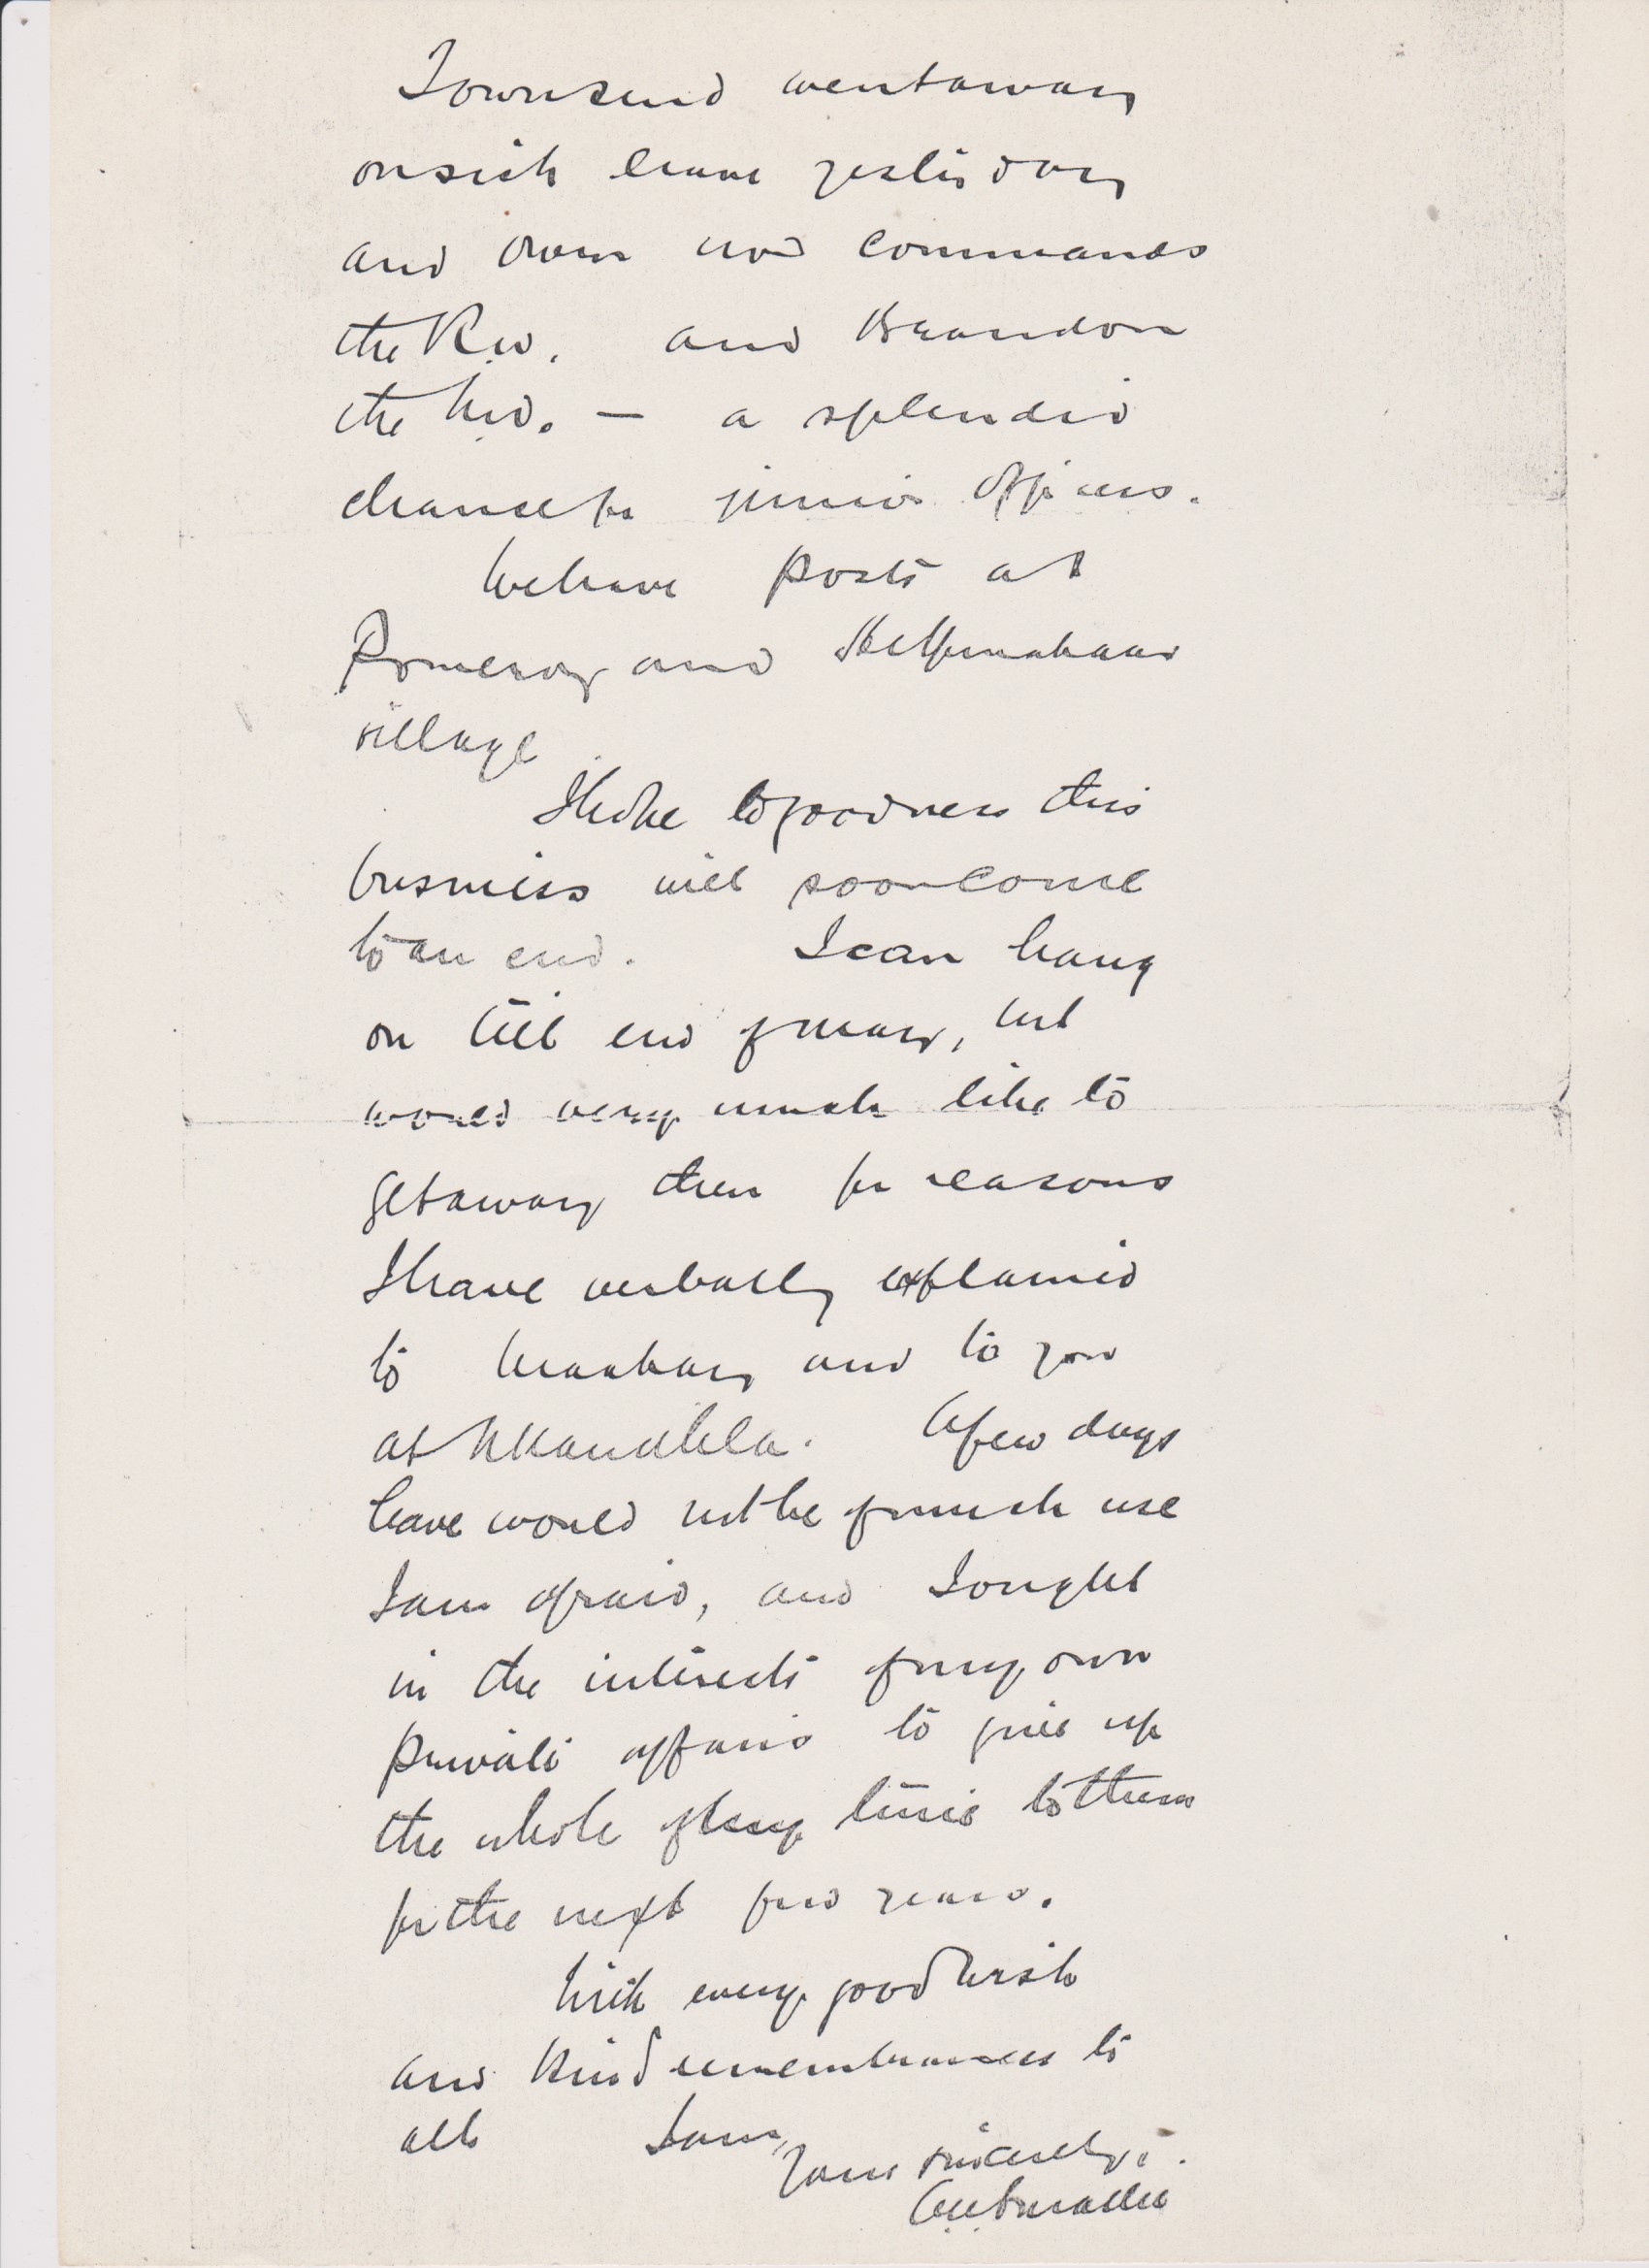 Townsend went away
on sick leave yesterday
and Owen now commands
the R.W. and Brandon
the
 — a splendid
chance for junior officers.
We have posts at
Pomeroy and Helpmakaar
village
I hope to goodness this
business will soon come
to an end. I can hang
on till end of May, but
would very much like to
get away then for reasons
I have verbally explained
to Mackay and to you
at Nkandhla. A few days
leave would not be of much use
I am afraid, and I ought
in the interests of my own
private affairs to give up
the whole of my time to them
for the next few years.
With every good wish
and kind remembrances to
all I am,
Yours sincerely,